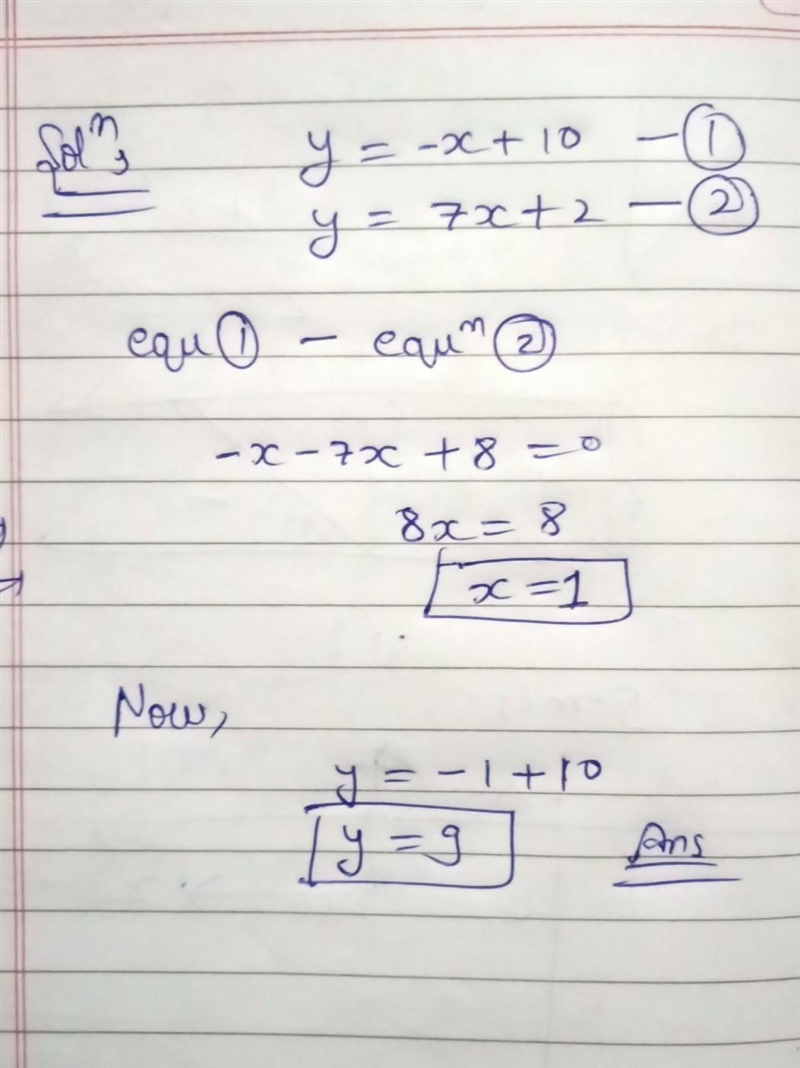 Solⁿ, y = -x + 10 — ①
y = 7x + 2 — ②
equ ① — equⁿ ②
-x - 7x + 8 = 0
8x = 8
x = 1
Now,
y = -1 + 10
y = 9 Ans